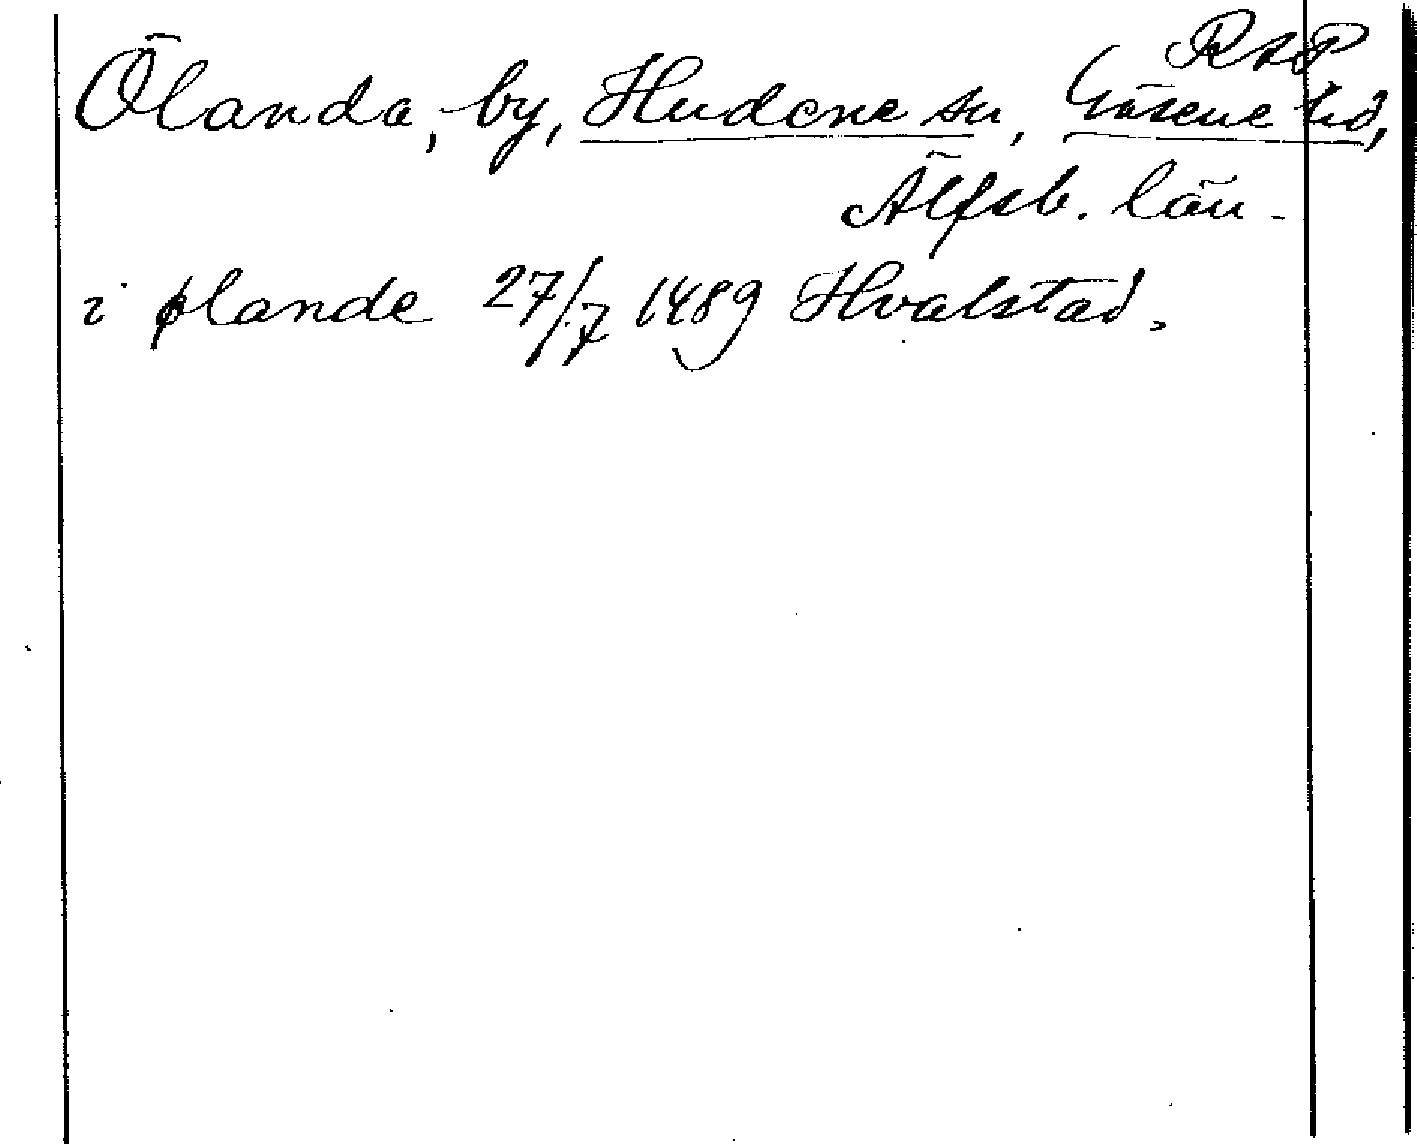 RAP
Ölanda, by, Hudene sn, Gäsene hd,
Älfsb. län.
i ølande 27/7 1489 Hvalstad.